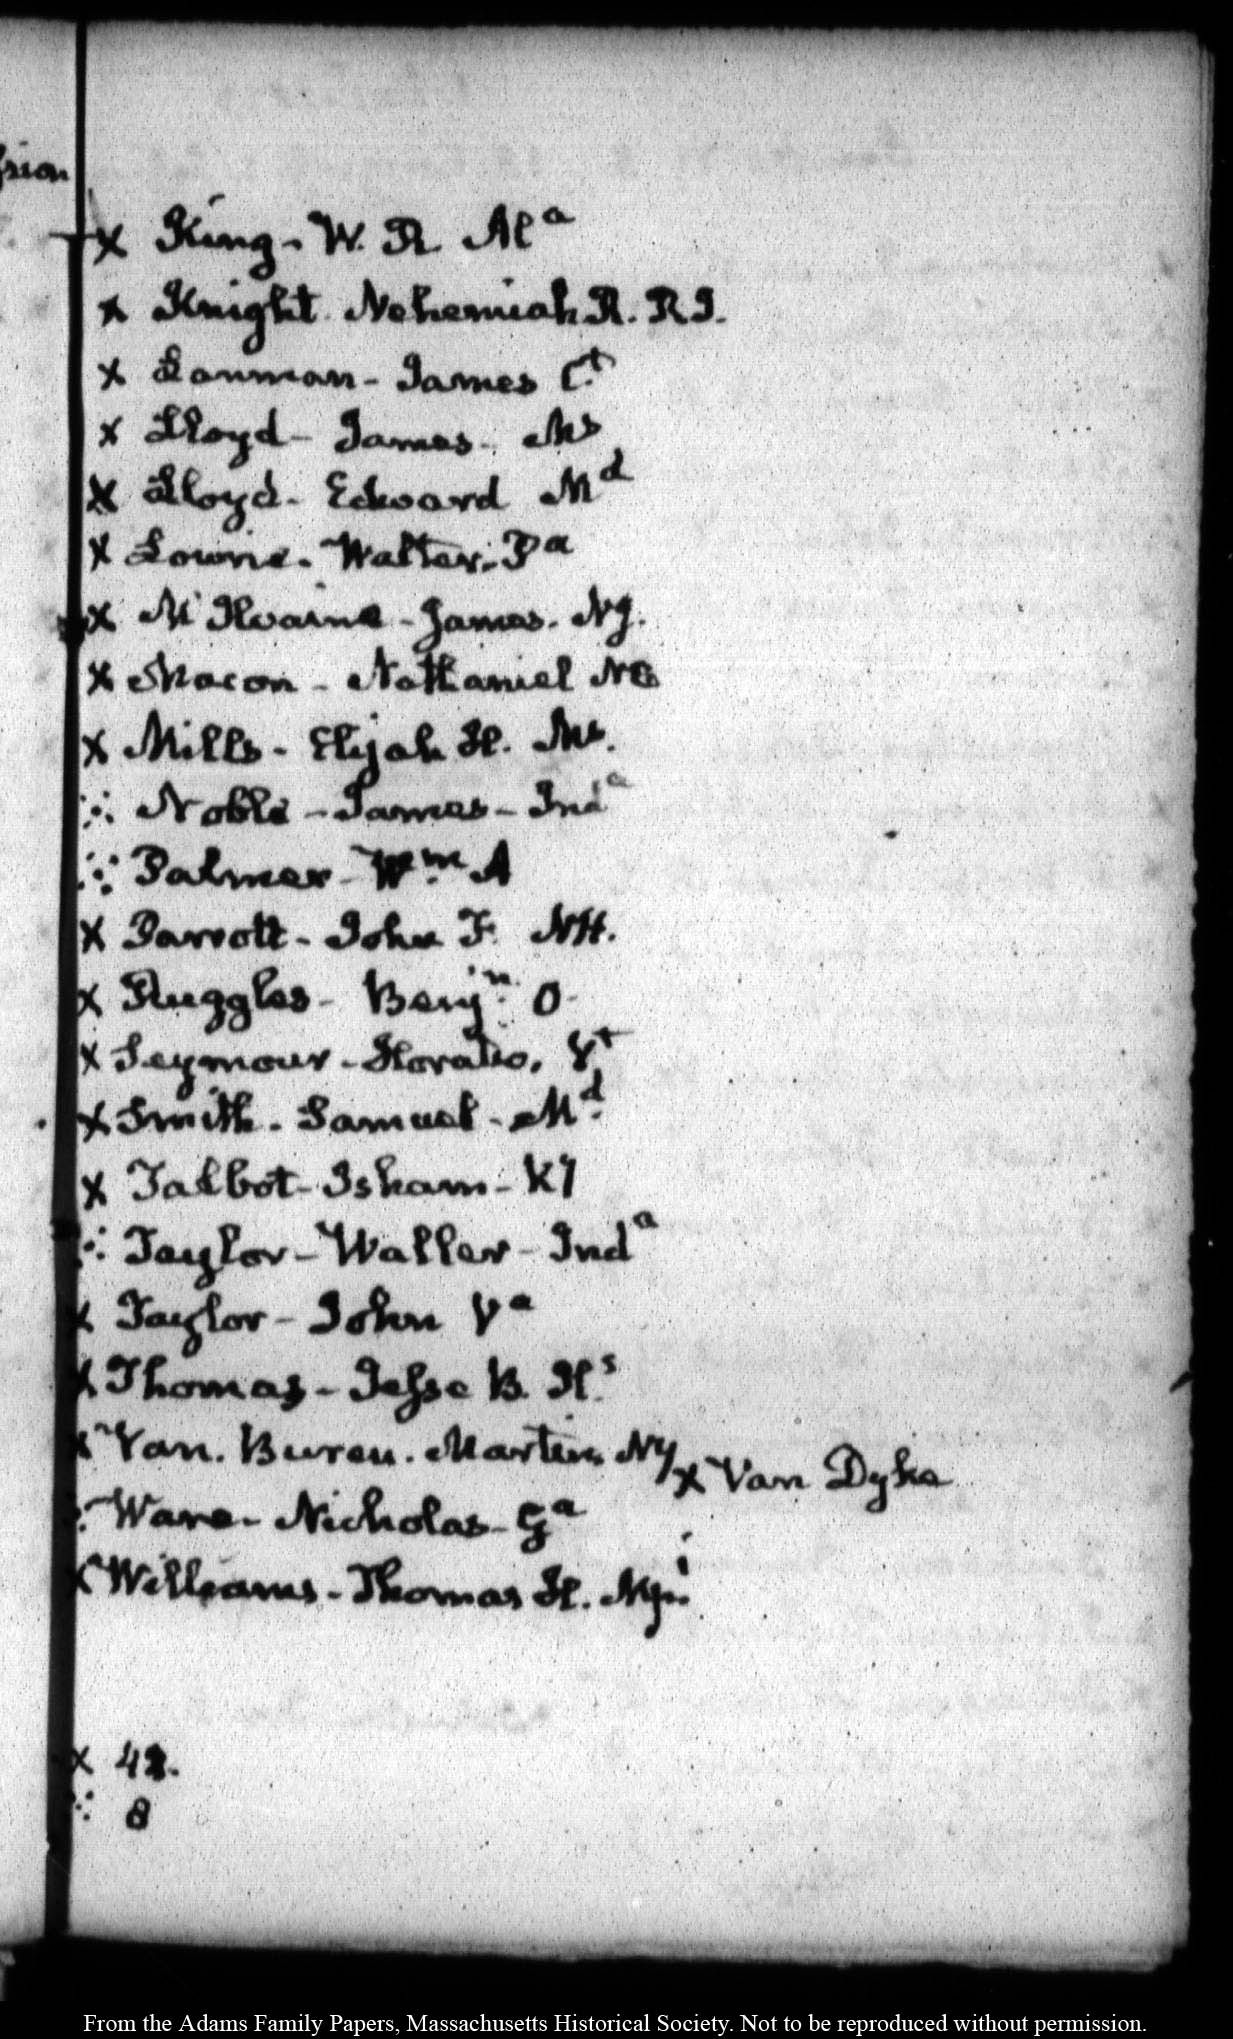 × King - W. R. Alᵃ
× Knight Nehemiah R. R I.
× Lanman - James Cᵗ
× Lloyd - James - Ms
× Lloyd - Edward Mᵈ
× Lowrie - Walter - Pᵃ
× McIlvaine - James - NJ.
× Macon - Nathaniel NC
× Mills - Elijah H. Ms.
჻ Noble - James - Indᵃ
჻ Palmer - Wᵐ A
× Parrott - John F. NH.
× Ruggles - Benjⁿ O.
× Seymour - Horatio, Vᵗ
× Smith - Samuel - Mᵈ
× Talbot - Isham - Ky
჻ Taylor - Waller - Indᵃ
× Taylor - John Vᵃ
× Thomas - Jesse B. Ilˢ
× Van Buren. Martin NY × Van Dyke
჻ Ware - Nicholas - Gᵃ
× Williams - Thomas H. Mpⁱ
× 42.
჻ 8
From the Adams Family Papers, Massachusetts Historical Society. Not to be reproduced without permission.